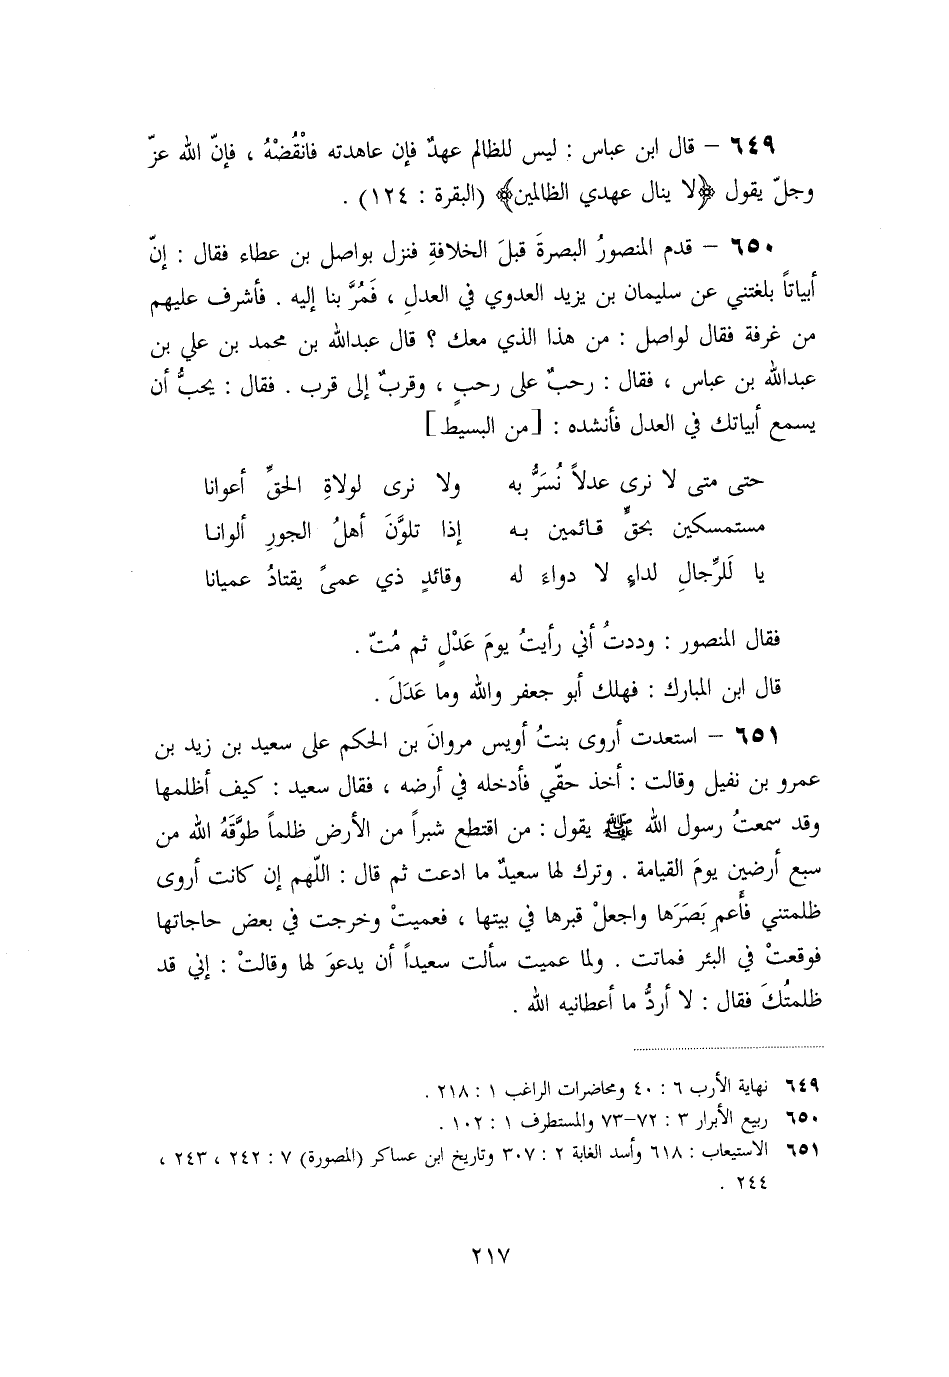 ٦٤٩ – قال ابن عباس : ليس للظالم عهدٌ فإن عاهدته فانْقُضْهُ ، فإنّ الله عزّ
وجلّ يقول ﴿لا ينال عهدي الظالمين﴾ (البقرة : ١٢٤) .
٦٥٠ – قدم المنصورُ البصرةَ قبلَ الخلافةِ فنزل بواصل بن عطاء فقال : إنّ
أبياتاً بلغتني عن سليمان بن يزيد العدوي في العدلِ ، فَمُرَّ بنا إليه . فأشرف عليهم
من غرفة فقال لواصل : من هذا الذي معك ؟ قال عبدالله بن محمد بن علي بن
عبدالله بن عباس ، فقال : رحبٌ على رحبٍ ، وقربٌ إلى قرب . فقال : يحبُّ أن
يسمع أبياتك في العدل فأنشده : [من البسيط]
حتى متى لا نرى عدلاً نُسَرُّ به ولا نرى لولاةِ الحقِّ أعوانا
مستمسكين بحقٍّ قائمين به إذا تلوَّنَ أهلُ الجورِ ألوانا
يا لَلرِّجالِ لداءٍ لا دواءَ له وقائدٍ ذي عمىً يقتادُ عميانا
فقال المنصور : وددتُ أني رأيتُ يومَ عَدْلٍ ثم مُتّ .
قال ابن المبارك : فهلك أبو جعفر والله وما عَدَلَ .
٦٥١ – استعدت أروى بنتُ أويس مروانَ بن الحكم على سعيد بن زيد بن
عمرو بن نفيل وقالت : أخذ حقّي فأدخله في أرضه ، فقال سعيد : كيف أظلمها
وقد سمعتُ رسول الله ﷺ يقول : من اقتطع شبراً من الأرض ظلماً طوَّقَهُ الله من
سبع أرضين يومَ القيامة . وترك لها سعيدٌ ما ادعت ثم قال : اللّهم إن كانت أروى
ظلمتني فأَعمِ بَصَرَها واجعلْ قبرها في بيتها ، فعميتْ وخرجت في بعض حاجاتها
فوقعتْ في البئر فماتت . ولما عميت سألت سعيداً أن يدعوَ لها وقالتْ : إني قد
ظلمتُكَ فقال : لا أردُّ ما أعطانيه الله .
٦٤٩ نهاية الأرب ٦ : ٤٠ ومحاضرات الراغب ١ : ٢١٨ .
٦٥٠ ربيع الأبرار ٣ : ٧٢–٧٣ والمستطرف ١ : ١٠٢ .
٦٥١ الاستيعاب : ٦١٨ وأسد الغابة ٢ : ٣٠٧ وتاريخ ابن عساكر (المصورة) ٧ : ٢٤٢ ، ٢٤٣ ،
٢٤٤ .
٢١٧